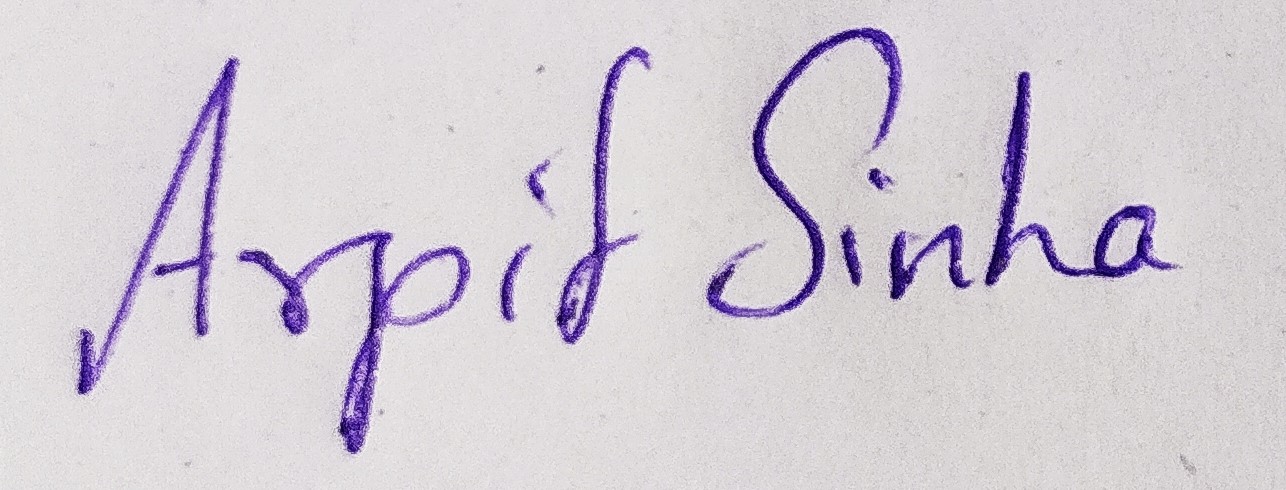 Arpit Sinha